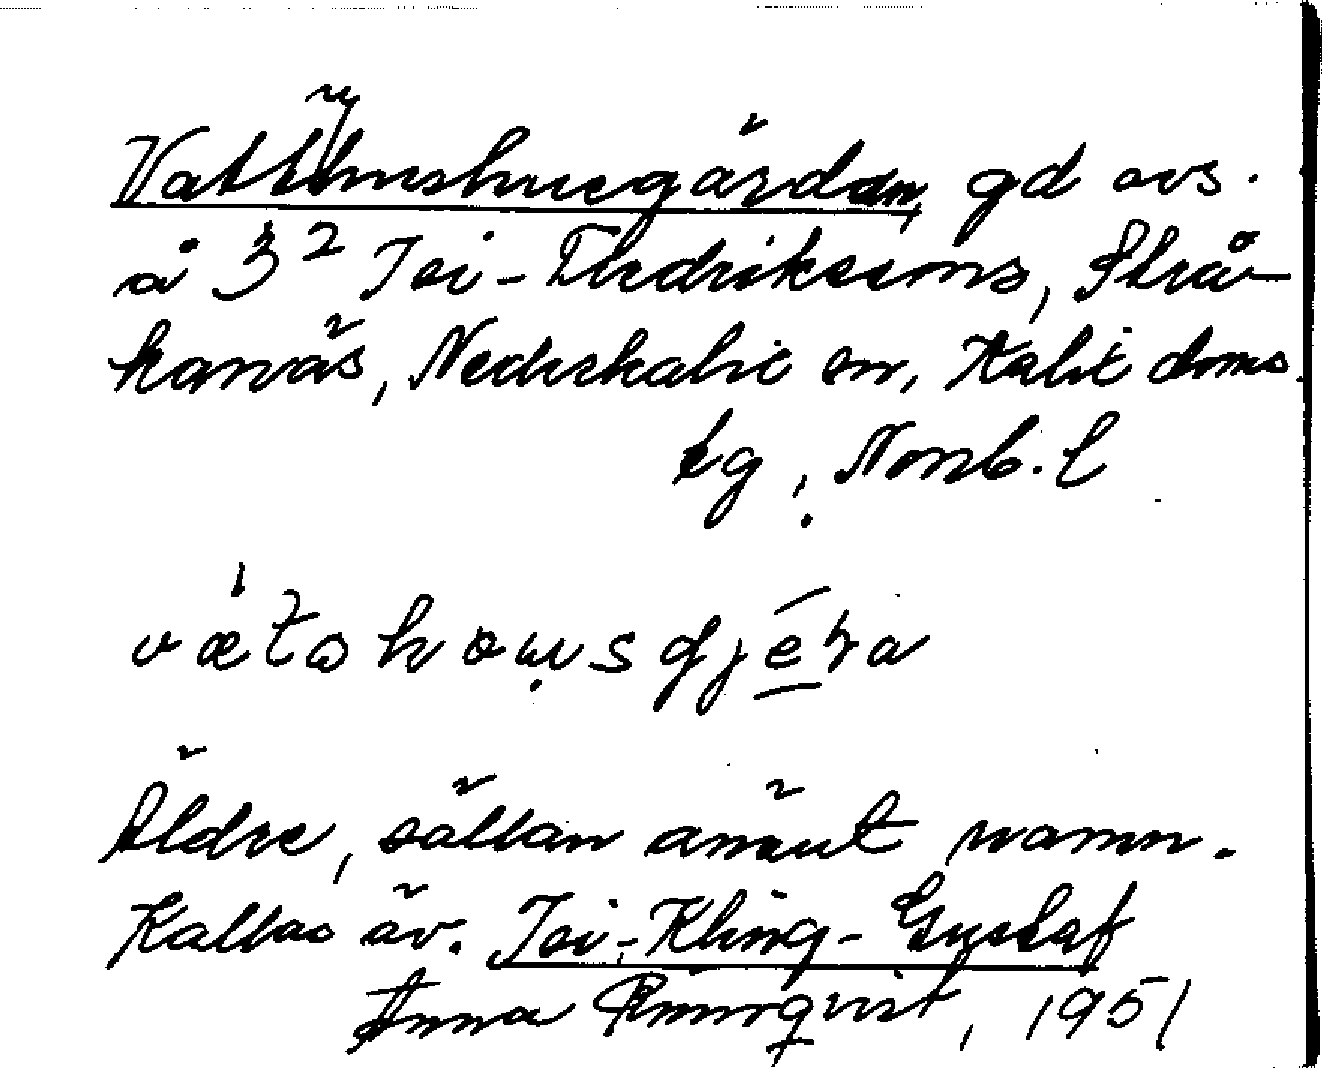 Vattushusgärdan, gd avs.
å 3² Joi-Fredrikssons, Strå-
kanäs, Nederkalix sn, Kalix doms.
tg, Norrb. l
vætωhowusgjéra
Äldre, sällan använt namn.
Kallas äv. Joi-Kling-Gustaf
Anna Rönnqvist, 1951